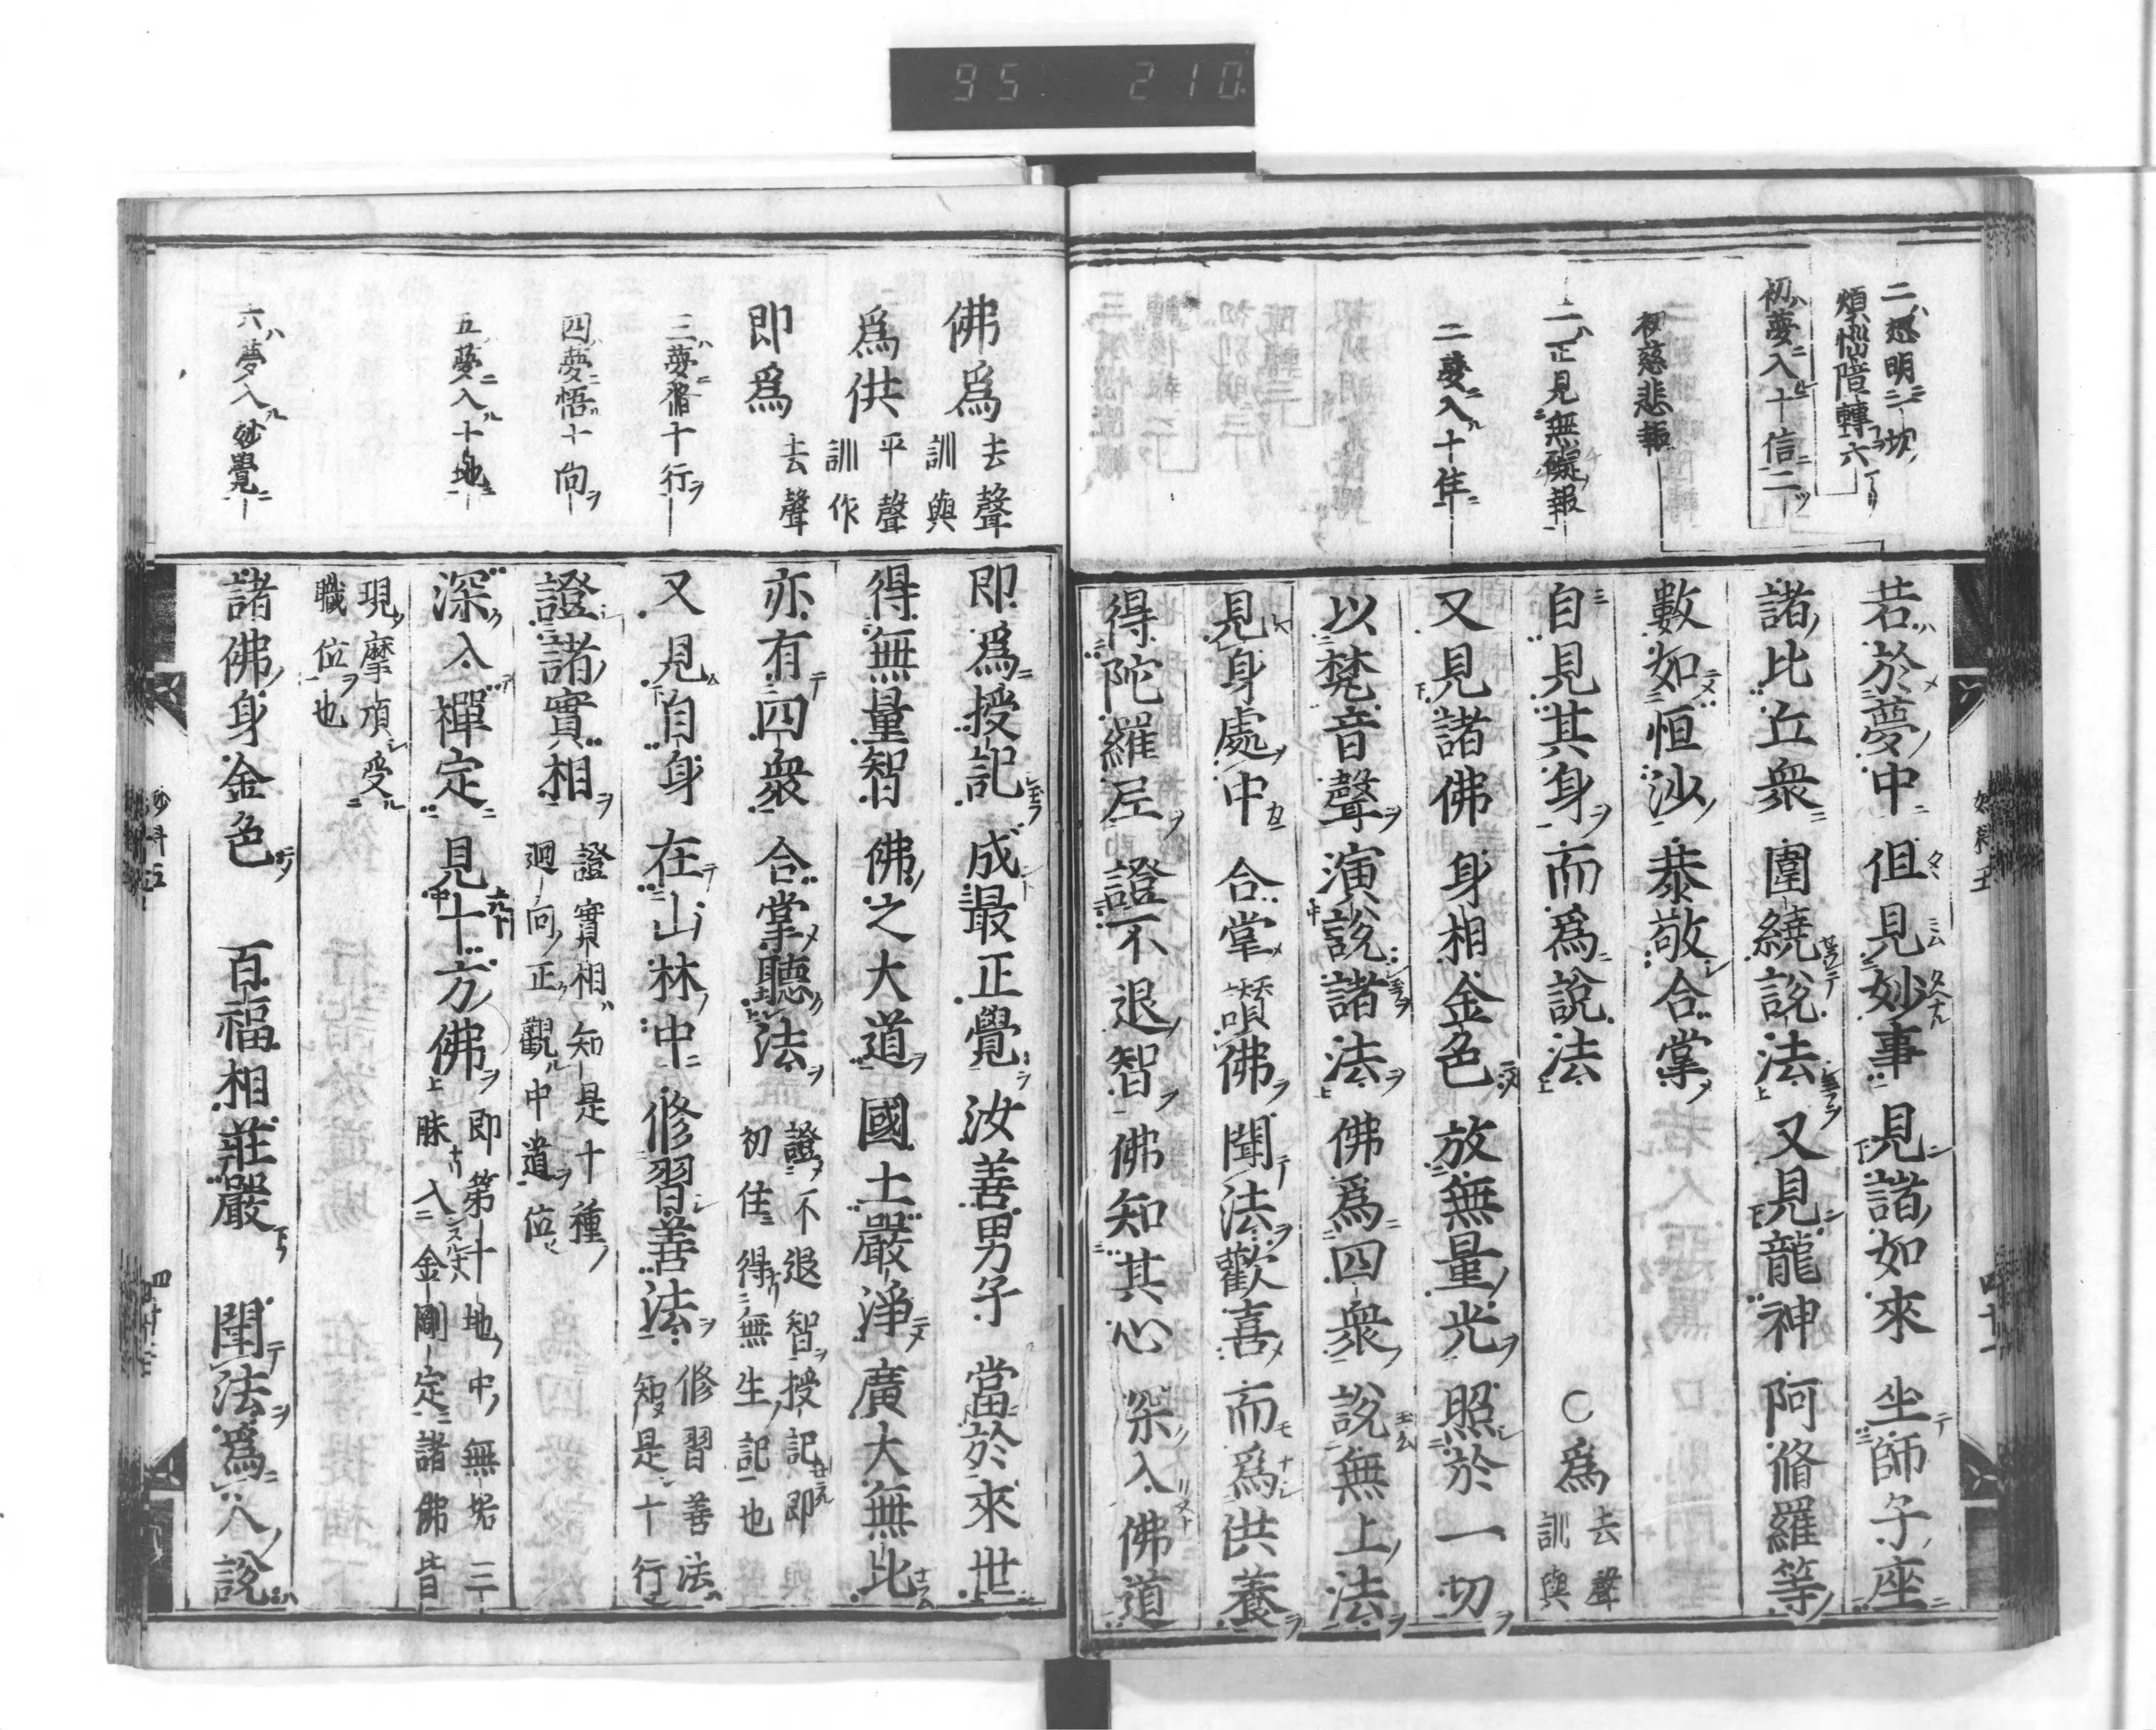 95 210
二總明三坎
煩惱障轉六
初夢入十信二
初慈悲報
二正見無礙報
二夢入十住
若於夢中 但見妙事 見諸如來 坐師子座
諸比丘衆 圍繞說法 又見龍神 阿脩羅等
數如恒沙 恭敬合掌
自見其身 而爲說法 〇爲 去聲 訓與
又見諸佛 身相金色 放無量光 照於一切
以梵音聲 演說諸法 佛爲四衆 說無上法
見身處中 合掌讃佛 聞法歡喜 而爲供養
得陀羅尼 證不退智 佛知其心 深入佛道
佛爲 去聲 訓與
爲供 平聲 訓作
即爲 去聲
三夢脩十行
四夢悟十向
五夢入十地
六夢入妙覺
即爲授記 成最正覺 汝善男子 當於來世
得無量智 佛之大道 國土嚴淨 廣大無比
亦有四衆 合掌聽法 證不退智授記即
初住得無生記也
又見自身 在山林中 修習善法 修習善法
知是十行
證諸實相 證實相知是十種
廻向正觀中道位
深入禪定 見十方佛 即第十地中無垢三
昧入金剛定諸佛皆
現摩頂受
職位也
諸佛身金色 百福相莊嚴 聞法爲人說